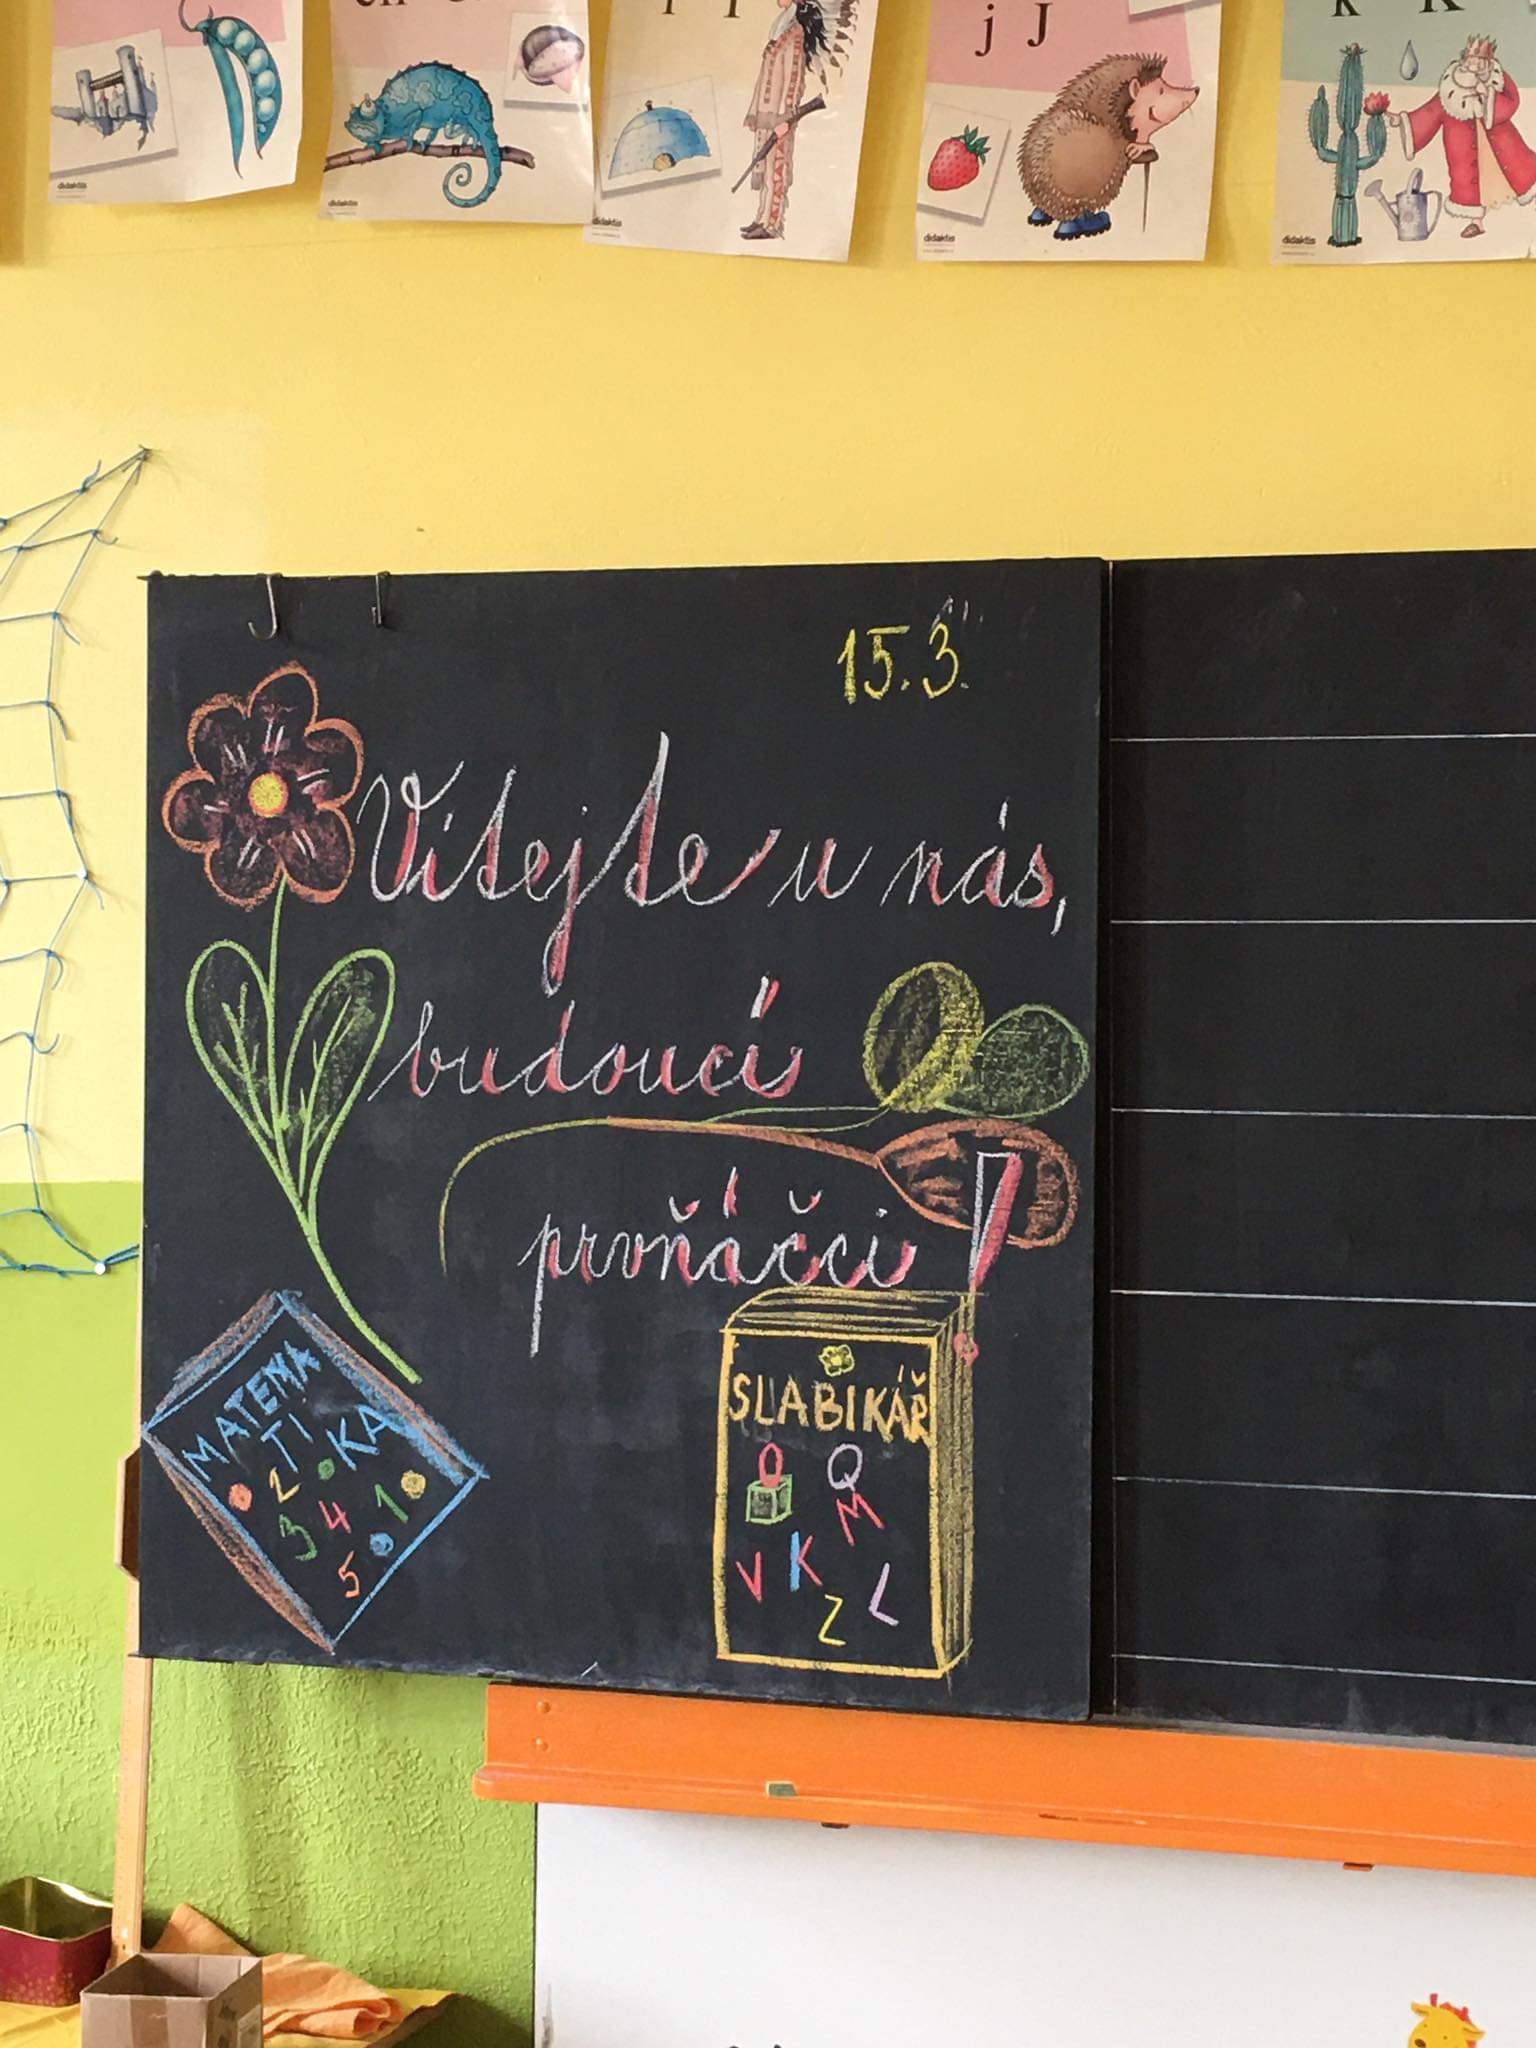 j J
k K
didaktis
didaktis
didaktis
didaktis
didaktis
15.3.
Vítejte u nás,
budoucí
prvňáčci!
MATEMA
TI KA
2
3 4 1
5
SLABIKÁŘ
O Q
M
V K
Z L